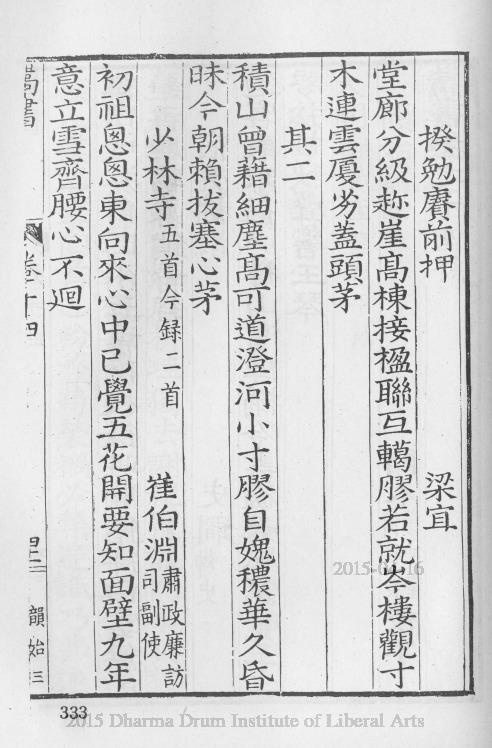 揆勉賡前押　梁宜
堂廊分級趂崖髙棟接楹聯互轕膠若就岑樓觀寸
木連雲優劣蓋頭茅
其二
積山曾藉細塵髙可道澄河小寸膠自媿穠華久昏
昧今朝賴拔塞心茅
少林寺五首今録二首　崔伯淵肅政廉訪司副使
初祖悤悤東向來心中已覺五花開要知面壁九年
意立雪齊腰心不迴
嵩書　卷十四　四二　韻始三
2015-01-16
333
2015 Dharma Drum Institute of Liberal Arts